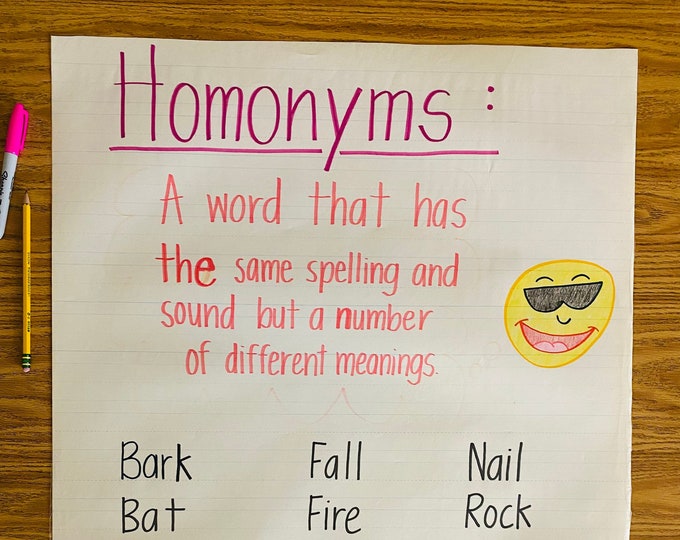 Homonyms:
A word that has
the same spelling and
sound but a number
of different meanings.
Bark Fall Nail
Bat Fire Rock